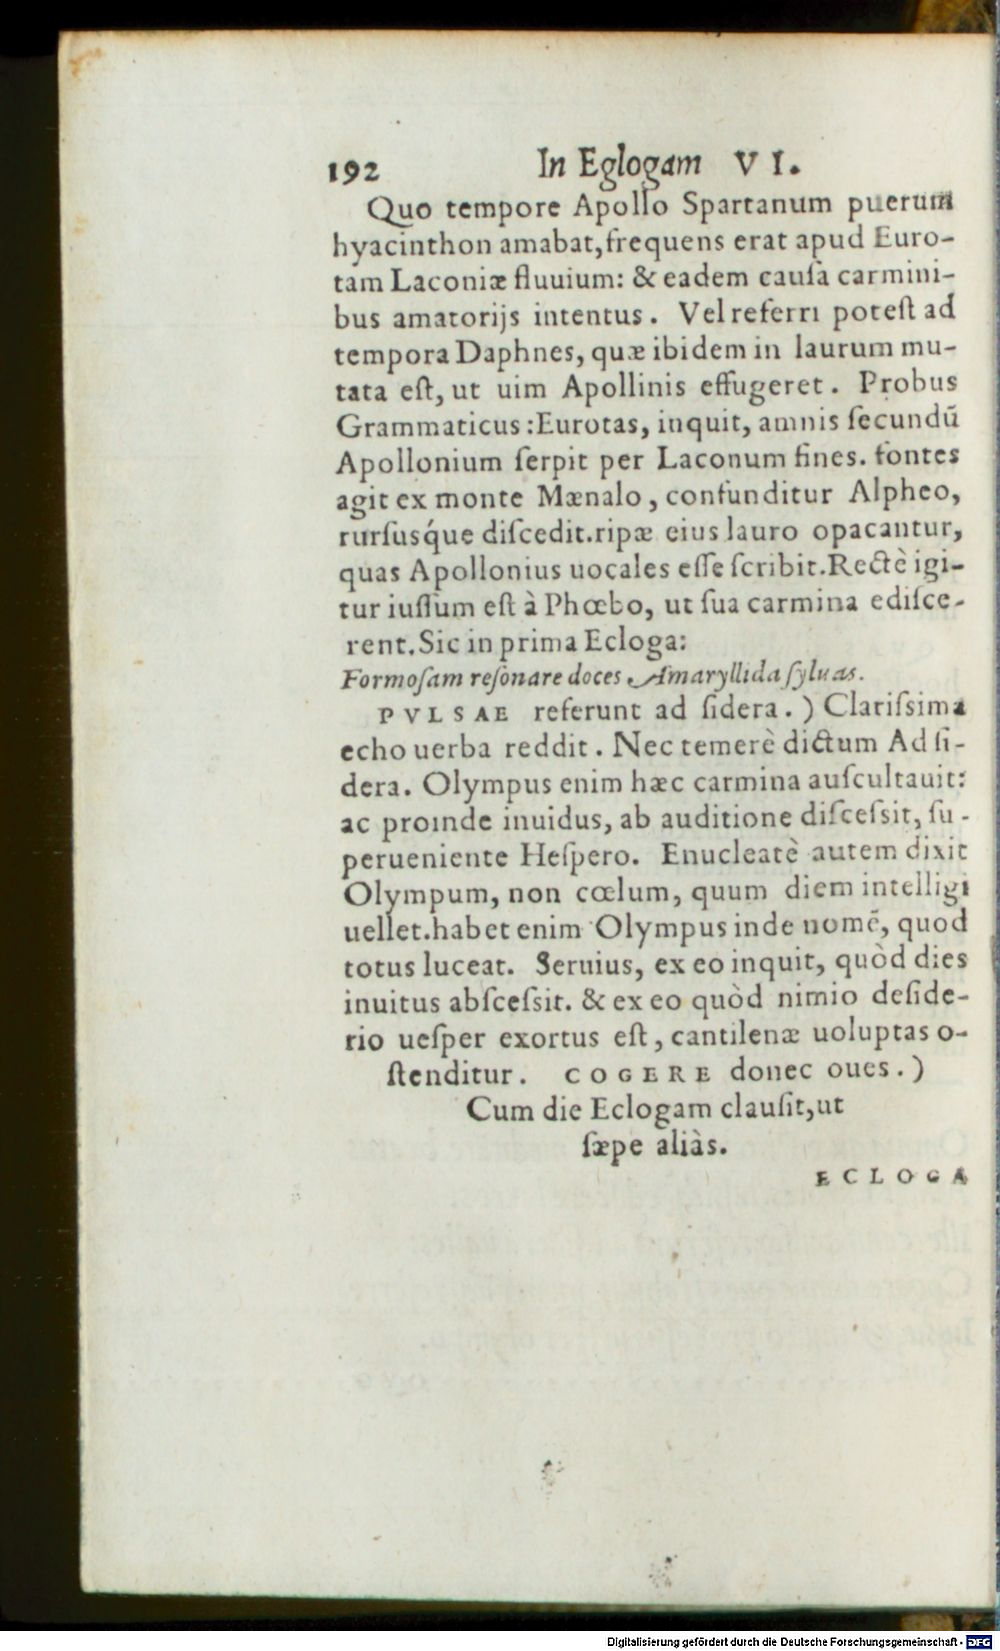 192 In Eglogam VI.
Quo tempore Apollo Spartanum puerum
hyacinthon amabat, frequens erat apud Euro-
tam Laconiæ fluuium: & eadem cauſa carmini-
bus amatorijs intentus. Vel referri poteſt ad
tempora Daphnes, quæ ibidem in laurum mu-
tata eſt, ut uim Apollinis effugeret. Probus
Grammaticus: Eurotas, inquit, amnis ſecundū
Apollonium ſerpit per Laconum fines. fontes
agit ex monte Mænalo, confunditur Alpheo,
rurſusq́ue diſcedit. ripæ eius lauro opacantur,
quas Apollonius uocales eſſe ſcribit. Rectè igi-
tur iuſſum eſt à Phœbo, ut ſua carmina ediſce-
rent. Sic in prima Ecloga:
Formoſam reſonare doces Amaryllida ſyluas.
PVLSAE referunt ad ſidera.) Clariſsima
echo uerba reddit. Nec temerè dictum Ad ſi-
dera. Olympus enim hæc carmina auſcultauit:
ac proinde inuidus, ab auditione diſceſsit, ſu-
perueniente Heſpero. Enucleatè autem dixit
Olympum, non cœlum, quum diem intelligi
uellet. habet enim Olympus inde nomē, quod
totus luceat. Seruius, ex eo inquit, quòd dies
inuitus abſceſsit. & ex eo quòd nimio deſide-
rio ueſper exortus eſt, cantilenæ uoluptas o-
ſtenditur. COGERE donec oues.)
Cum die Eclogam clauſit, ut
ſæpe aliàs.
ECLOGA
Digitalisierung gefördert durch die Deutsche Forschungsgemeinschaft - DFG